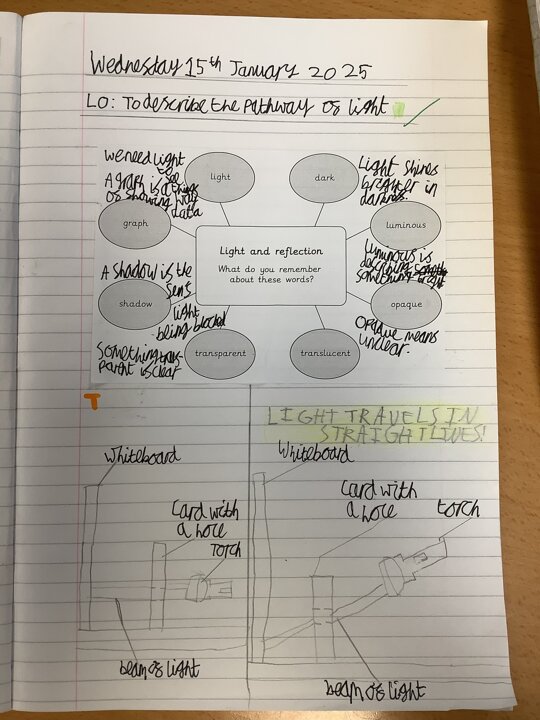 Wednesday 15th January 2025
LO: To describe the pathway of light
We need light
to see
light
dark
Light shines
brighter in
darkness.
A graph is a
of showing
data
graph
luminous
Luminous is
describing
something bright
Light and reflection
What do you remember
about these words?
A shadow is the
light
being blocked
shadow
opaque
Opaque means
unclear.
Something trans-
parent is clear
transparent
translucent
T
LIGHT TRAVELS IN
STRAIGHT LINES!
Whiteboard
Card with
a hole
Torch
beam of light
Whiteboard
Card with
a hole
torch
beam of light